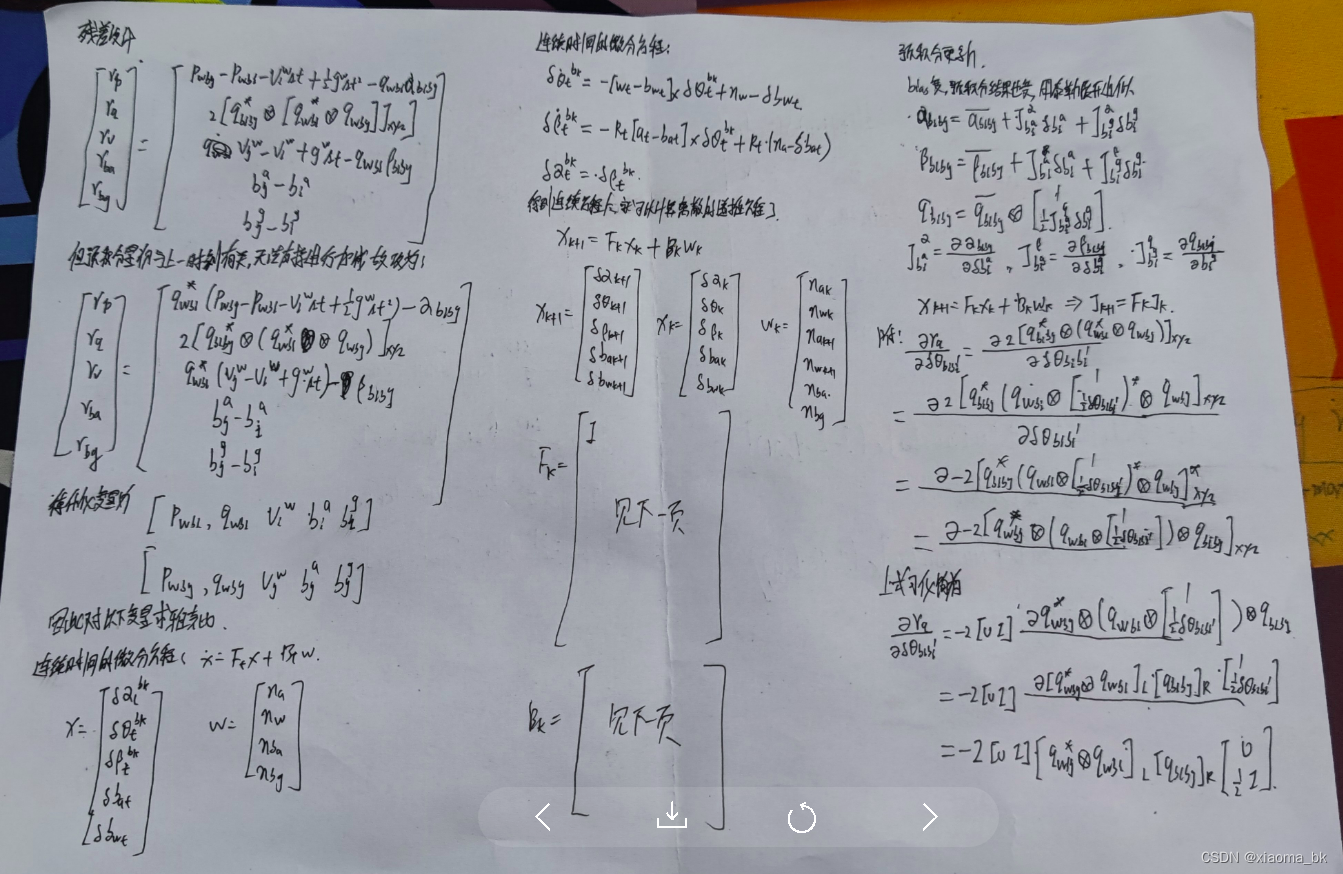 残差设计
[r_p r_q r_v r_ba r_bg] = [P_wbj - P_wbi - V_i^wΔt + ½g^wΔt² - q_wbi α_bibj
2[q*_bibj ⊗ [q*_wbi ⊗ q_wbj]]_xyz
V_j^w - V_i^w + g^wΔt - q_wbi β_bibj
b_j^a - b_i^a
b_j^g - b_i^g]
[r_p r_q r_v r_ba r_bg] = [q*_wbi (P_wbj - P_wbi - V_i^wΔt + ½g^wΔt²) - α_bibj
2[q*_bibj ⊗ (q*_wbi ⊗ q_wbj)]_xyz
q*_wbi (V_j^w - V_i^w + g^wΔt) - β_bibj
b_j^a - b_i^a
b_j^g - b_i^g]
待优化变量为 [P_wbi, q_wbi V_i^w b_i^a b_i^g]
[P_wbj, q_wbj V_j^w b_j^a b_j^g]
因此对以下变量求雅克比.
连续时间的微分方程: ẋ = F_t x + B_t w.
x = [δα_t^bk δθ_t^bk δβ_t^bk δb_at δb_wt] w = [n_a n_w n_ba n_bg]
连续时间的微分方程:
δθ̇_t^bk = -[w_t - b_wt]_× δθ_t^bk + n_w - δb_wt
δβ̇_t^bk = -R_t[a_t - b_at]_× δθ_t^bk + R_t(n_a - δb_at)
δα̇_t^bk = δβ_t^bk.
x_k+1 = F_k x_k + B_k w_k
x_k+1 = [δα_k+1 δθ_k+1 δβ_k+1 δb_ak+1 δb_wk+1] x_k = [δα_k δθ_k δβ_k δb_ak δb_wk] w_k = [n_ak n_wk n_ak+1 n_wk+1 n_ba n_bg]
F_k = [I
见下一页]
B_k = [见下一页]
预积分更新.
bias变,预积分结果也变,用泰勒展开近似
α_bibj = α̅_bibj + J_bi^α δb_i^a + J_bi^α δb_i^g
β_bibj = β̅_bibj + J_bi^β δb_i^a + J_bi^β δb_i^g
q_bibj = q̅_bibj ⊗ [1 ½J_bi^q δb_i^g].
J_bi^α = ∂α_bibj/∂δb_i^a , J_bi^β = ∂β_bibj/∂δb_i^a , J_bi^q = ∂q_bibj/∂b_i^g
x_k+1 = F_k x_k + B_k w_k ⇒ J_k+1 = F_k J_k.
∂r_q/∂δθ_bibi' = ∂2[q*_bibj ⊗ (q*_wbi ⊗ q_wbj)]_xyz / ∂δθ_bibi'
= ∂2[q*_bibj (q_wbi ⊗ [1 ½δθ_bibi'])* ⊗ q_wbj]_xyz / ∂δθ_bibi'
= ∂-2[q*_bibj (q_wbi ⊗ [1 ½δθ_bibi'])* ⊗ q_wbj]*_xyz
= ∂-2[q*_wbj ⊗ (q_wbi ⊗ [1 ½δθ_bibi']) ⊗ q_bibj]_xyz
上式可化简为
∂r_q/∂δθ_bibi' = -2[0 I] ∂q*_wbj ⊗ (q_wbi ⊗ [1 ½δθ_bibi']) ⊗ q_bibj
= -2[0 I] ∂[q*_wbj ⊗ q_wbi]_L [q_bibj]_R · [1 ½δθ_bibi']
= -2[0 I][q*_wbj ⊗ q_wbi]_L [q_bibj]_R [0 ½I].
CSDN @xiaoma_bk